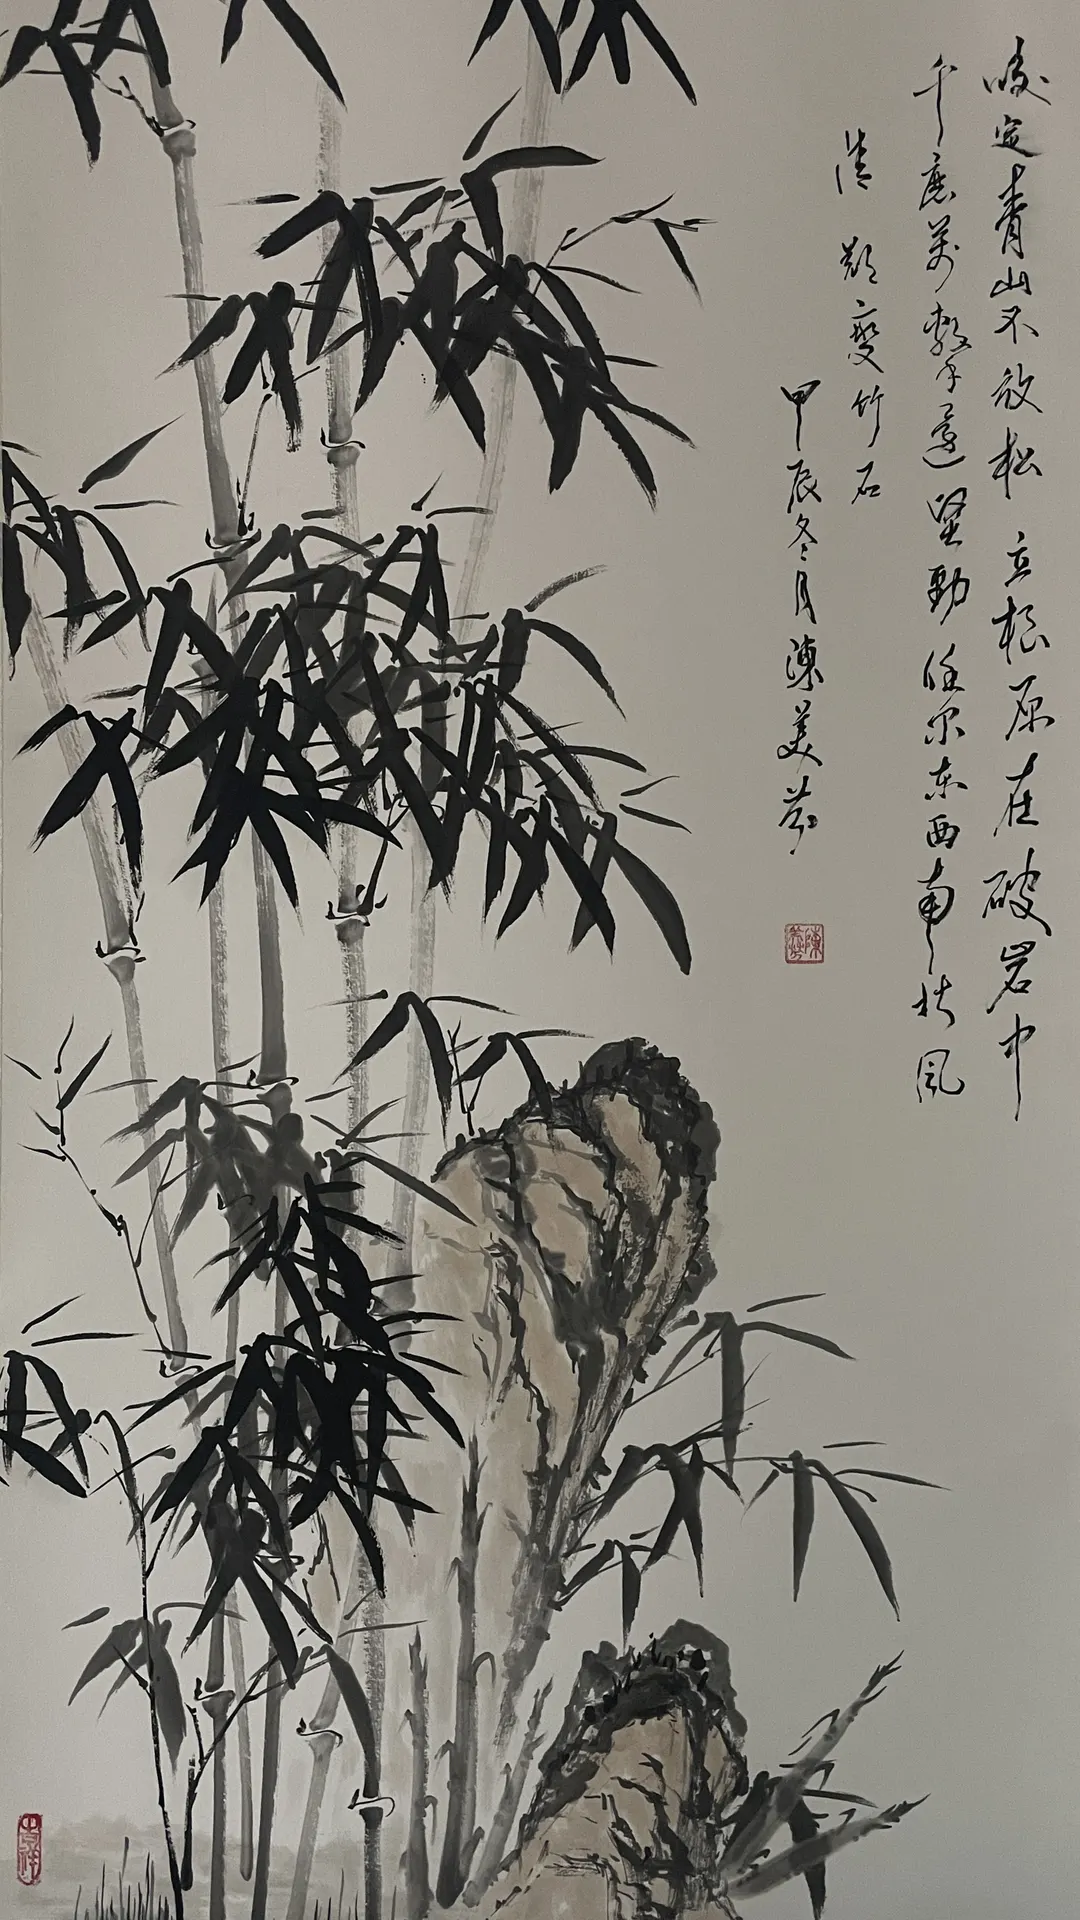 咬定青山不放松立根原在破岩中
千磨萬擊還堅勁任尔东西南北風
清鄭燮竹石
甲辰冬月陳美